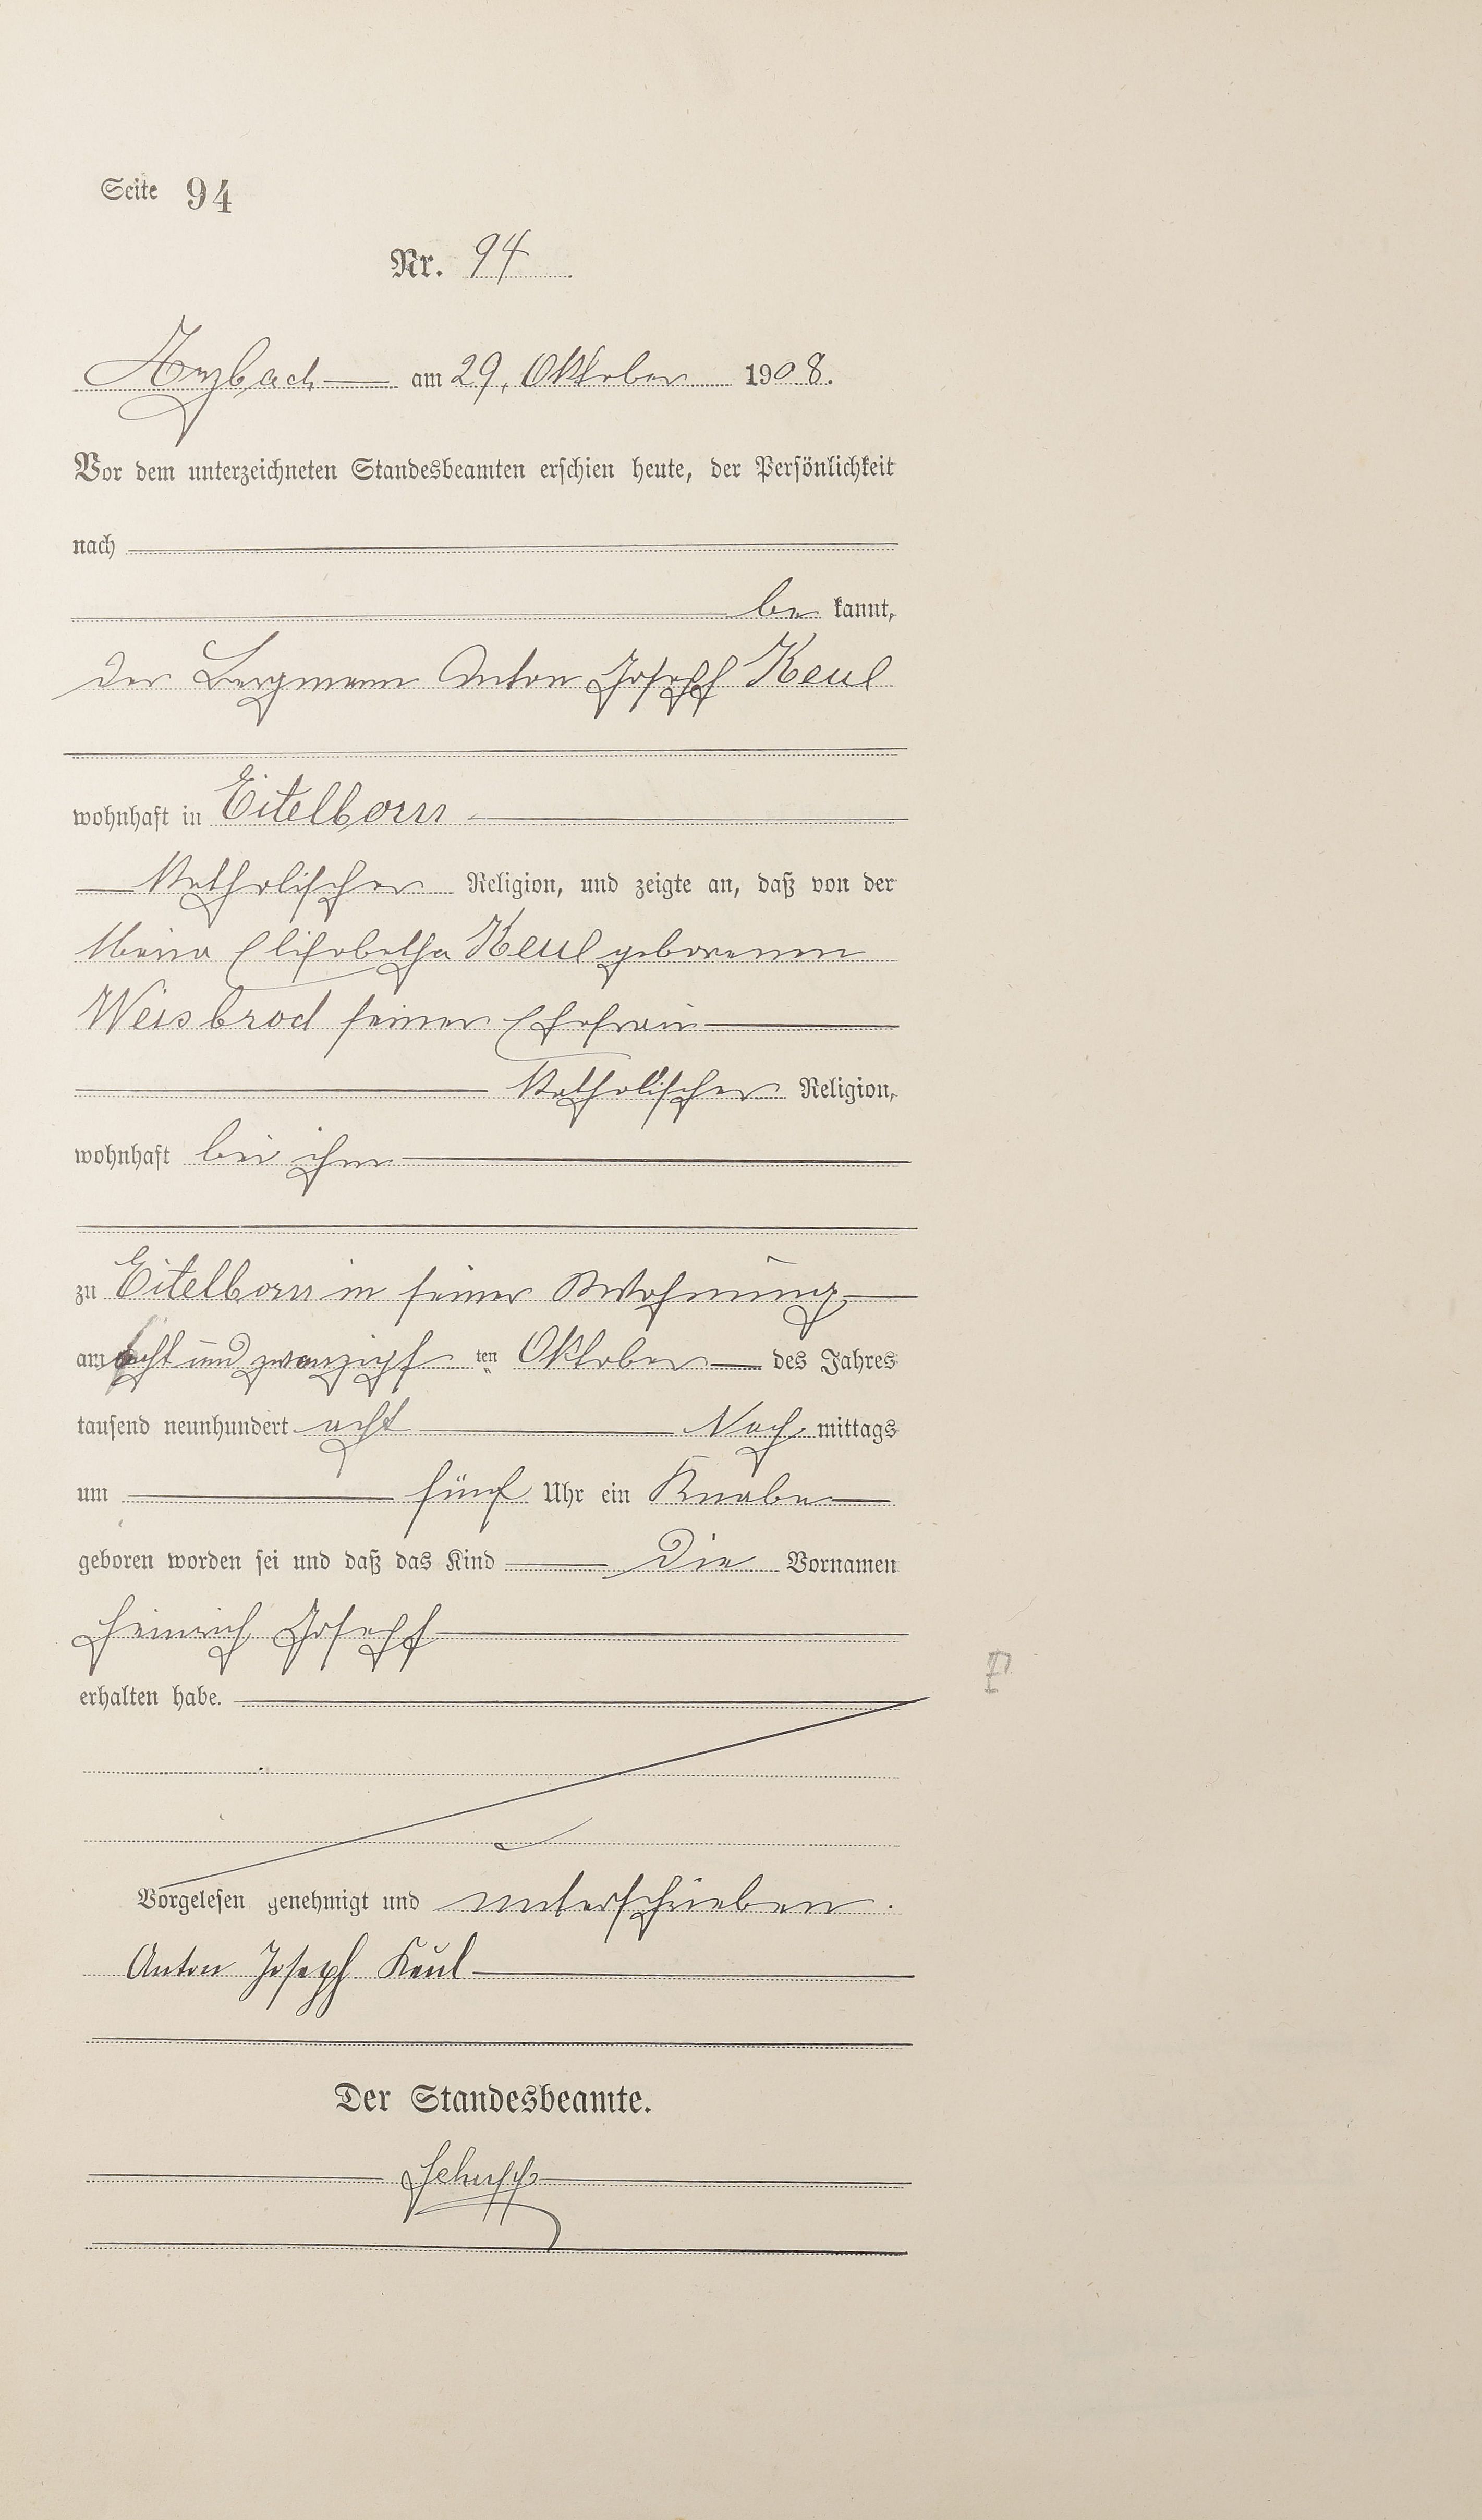 Seite 94
Nr. 94
Arzbach am 29. Oktober 1908.
Vor dem unterzeichneten Standesbeamten erschien heute, der Persönlichkeit
nach
be kannt,
der Bergmann Anton Joseph Keul
wohnhaft in Eitelborn
katholischer Religion, und zeigte an, daß von der
Maria Elisabetha Keul geborenen
Weisbrod seiner Ehefrau
katholischer Religion,
wohnhaft bei ihm
zu Eitelborn in seiner Wohnung
am acht und zwanzigs ten Oktober des Jahres
tausend neunhundert acht Nach mittags
um fünf Uhr ein Knabe
geboren worden sei und daß das Kind die Vornamen
Heinrich Joseph
erhalten habe.
Vorgelesen genehmigt und unterschrieben.
Anton Joseph Keul
Der Standesbeamte.